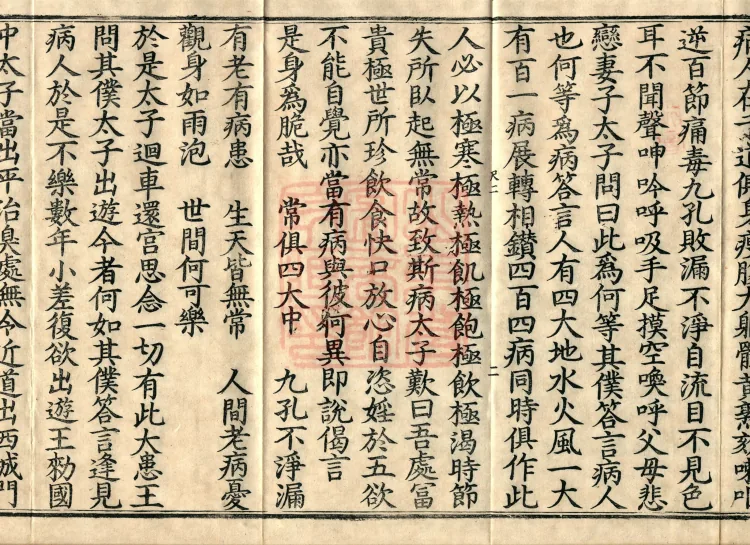 逆百節痛毒九孔敗漏不淨自流目不見色
耳不聞聲呻吟呼吸手足摸空喚呼父母悲
戀妻子太子問曰此爲何等其僕答言病人
也何等爲病答言人有四大地水火風一大
有百一病展轉相鑽四百四病同時俱作此
二
人必以極寒極熱極飢極飽極飲極渴時節
失所臥起無常故致斯病太子歎曰吾處冨
貴極世所珍飲食快口放心自恣婬於五欲
不能自覺亦當有病與彼何異即說偈言
是身為脆哉 常俱四大中 九孔不淨漏
有老有病患 生天皆無常 人間老病憂
觀身如雨泡 世間何可樂
於是太子迴車還宮思念一切有此大患王
問其僕太子出遊今者何如其僕答言逢見
病人於是不樂數年小差復欲出遊王勑國
中太子當出平治臭處無令近道出西城門